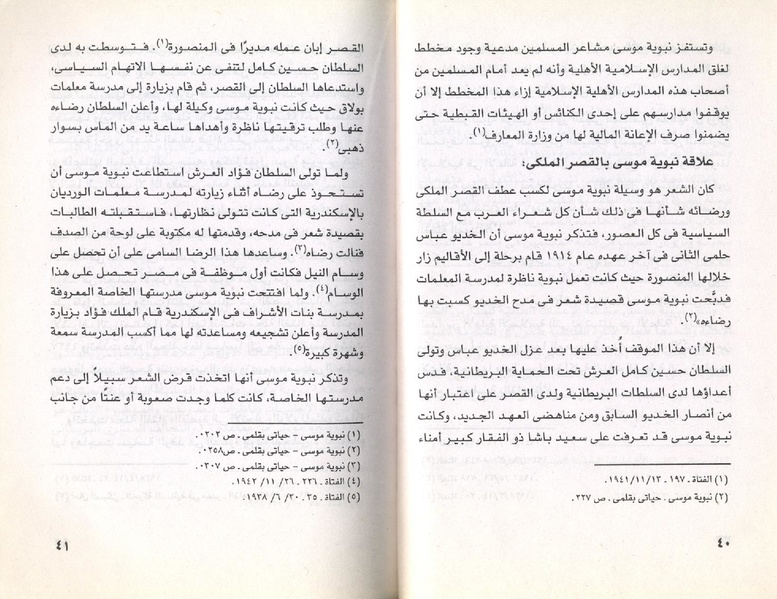 وتستفز نبوية موسى مشاعر المسلمين مدعية وجود مخطط
لغلق المدارس الإسلامية الأهلية وأنه لم يعد أمام المسلمين من
أصحاب هذه المدارس الأهلية الإسلامية إزاء هذا المخطط إلا أن
يوقفوا مدارسهم على إحدى الكنائس أو الهيئات القبطية حتى
يضمنوا صرف الإعانة المالية لها من وزارة المعارف(١).
علاقة نبوية موسى بالقصر الملكى:
كان الشعر هو وسيلة نبوية موسى لكسب عطف القصر الملكى
ورضائه شأنها فى ذلك شأن كل شعراء العرب مع السلطة
السياسية فى كل العصور، فتذكر نبوية موسى أن الخديو عباس
حلمى الثانى فى آخر عهده عام ١٩١٤ قام برحلة إلى الأقاليم زار
خلالها المنصورة حيث كانت تعمل نبوية ناظرة لمدرسة المعلمات
فدبَّجت نبوية موسى قصيدة شعر فى مدح الخديو كسبت بها
رضاءه»(٢).
إلا أن هذا الموقف أُخذ عليها بعد عزل الخديو عباس وتولى
السلطان حسين كامل العرش تحت الحماية البريطانية، فدس
أعداؤها لدى السلطات البريطانية ولدى القصر على اعتبار أنها
من أنصار الخديو السابق ومن مناهضى العهد الجديد، وكانت
نبوية موسى قد تعرفت على سعيد باشا ذو الفقار كبير أمناء
(١) الفتاة . ١٩٧ . ١٩٤١/١١/١٣.
(٢) نبوية موسى . حياتى بقلمى . ص ٢٢٧.
٤٠
القصر إبان عمله مديرًا فى المنصورة(١). فتوسطت به لدى
السلطان حسين كامل لتنفى عن نفسها الاتهام السياسى،
واستدعاها السلطان إلى القصر، ثم قام بزيارة إلى مدرسة معلمات
بولاق حيث كانت نبوية موسى وكيلة لها، وأعلن السلطان رضاءه
عنها وطلب ترقيتها ناظرة وأهداها ساعة يد من الماس بسوار
ذهبى(٢).
ولما تولى السلطان فؤاد العرش استطاعت نبوية موسى أن
تستحوذ على رضاه أثناء زيارته لمدرسة معلمات الورديان
بالإسكندرية التى كانت تتولى نظارتها، فاستقبلته الطالبات
بقصيدة شعر فى مدحه، وقدمتها له مكتوبة على لوحة من الصدف
فنالت رضاه(٣). وساعدها هذا الرضا السامى على أن تحصل على
وسام النيل فكانت أول موظفة فى مصر تحصل على هذا
الوسام(٤). ولما افتتحت نبوية موسى مدرستها الخاصة المعروفة
بمدرسة بنات الأشراف فى الإسكندرية قام الملك فؤاد بزيارة
المدرسة وأعلن تشجيعه ومساعدته لها مما أكسب المدرسة سمعة
وشهرة كبيرة(٥).
وتذكر نبوية موسى أنها اتخذت قرض الشعر سبيلاً إلى دعم
مدرستها الخاصة، كانت كلما وجدت صعوبة أو عنتًا من جانب
(١) نبوية موسى – حياتى بقلمى . ص ٢٠٢٠.
(٢) نبوية موسى – حياتى بقلمى . ص٢٥٨٠.
(٣) نبوية موسى – حياتى بقلمى . ص ٣٠٧٠.
(٤) الفتاة . ٢٢٦ . ٢٦/ ١١/ ١٩٤٢.
(٥) الفتاة . ٣٥ . ٣٠/ ٦/ ١٩٣٨.
٤١